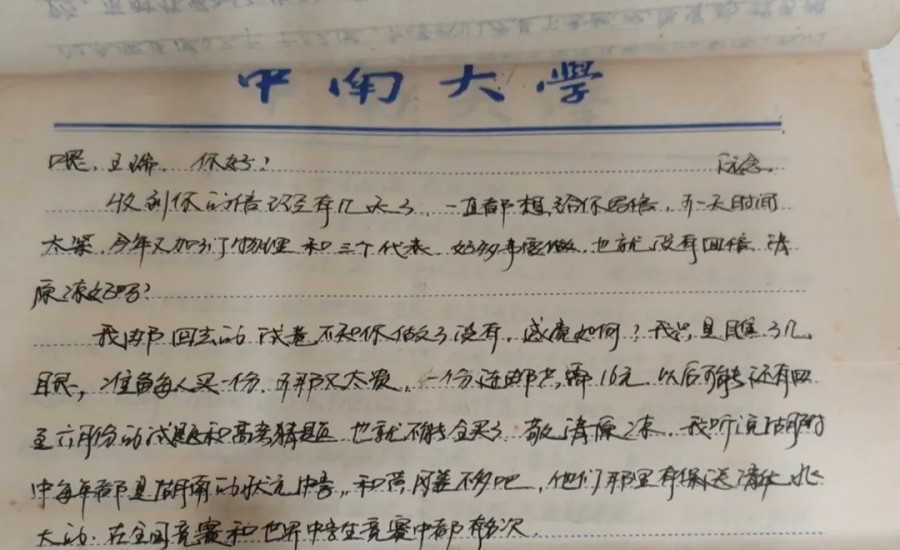 中南大学
嘿，王瑞，你好！ 
收到你的信已经有几天了，一直都想给你写信，不一天时间
太紧，今年又加了门物理和三个代表，好多事要做，也就没有回信，请
原谅好吗？
我邮回去的试卷不知你做了没有，感觉如何？我只是瞧了几
眼，准备每人买一份，可那又太贵，一份连邮共需16元，以后可能还有四
至六月份的试题和高考猜题，也就不能全买了，敬请原谅。我听说湖南附
中每年都是湖南的状元中学，和黄冈差不多吧，他们那里有保送清华北
大的，在全国竞赛和世界中学生竞赛中都有名次。